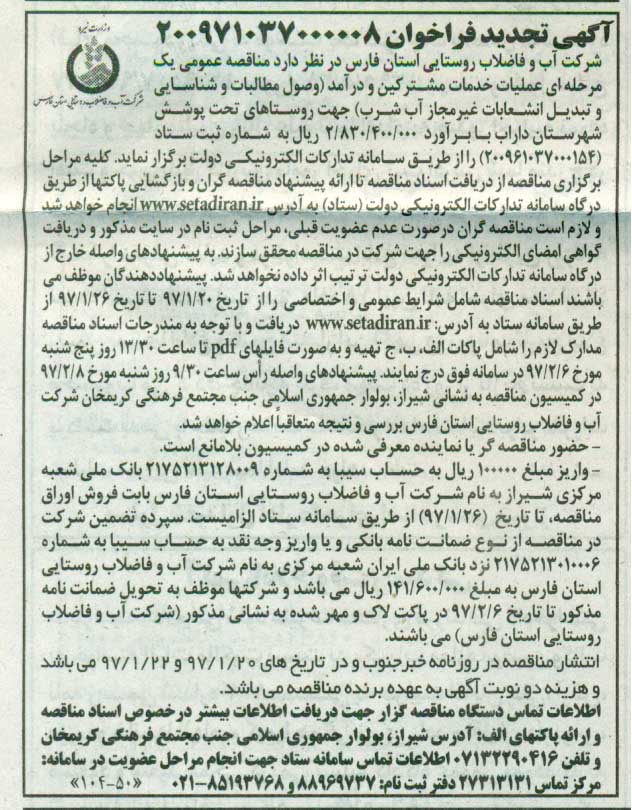 آگهی تجدید فراخوان ۲۰۰۹۷۱۰۳۷۰۰۰۰۰۰۸
وزارت نیرو
شرکت آب و فاضلاب روستایی استان فارس
شرکت آب و فاضلاب روستایی استان فارس در نظر دارد مناقصه عمومی یک
مرحله ای عملیات خدمات مشترکین و درآمد (وصول مطالبات و شناسایی
و تبدیل انشعابات غیرمجاز آب شرب) جهت روستاهای تحت پوشش
شهرستان داراب با برآورد ۲/۸۳۰/۴۰۰/۰۰۰ ریال به شماره ثبت ستاد
(۲۰۰۹۶۱۰۳۷۰۰۰۱۵۴) را از طریق سامانه تدارکات الکترونیکی دولت برگزار نماید. کلیه مراحل
برگزاری مناقصه از دریافت اسناد مناقصه تا ارائه پیشنهاد مناقصه گران و بازگشایی پاکتها از طریق
درگاه سامانه تدارکات الکترونیکی دولت (ستاد) به آدرس www.setadiran.ir انجام خواهد شد
و لازم است مناقصه گران درصورت عدم عضویت قبلی، مراحل ثبت نام در سایت مذکور و دریافت
گواهی امضای الکترونیکی را جهت شرکت در مناقصه محقق سازند. به پیشنهادهای واصله خارج از
درگاه سامانه تدارکات الکترونیکی دولت ترتیب اثر داده نخواهد شد. پیشنهاددهندگان موظف می
باشند اسناد مناقصه شامل شرایط عمومی و اختصاصی را از تاریخ ۹۷/۱/۲۰ تا تاریخ ۹۷/۱/۲۶ از
طریق سامانه ستاد به آدرس: www.setadiran.ir دریافت و با توجه به مندرجات اسناد مناقصه
مدارک لازم را شامل پاکات الف، ب، ج تهیه و به صورت فایلهای pdf تا ساعت ۱۳/۳۰ روز پنج شنبه
مورخ ۹۷/۲/۶ در سامانه فوق درج نمایند. پیشنهادهای واصله رأس ساعت ۹/۳۰ روز شنبه مورخ ۹۷/۲/۸
در کمیسیون مناقصه به نشانی شیراز، بولوار جمهوری اسلامی جنب مجتمع فرهنگی کریمخان شرکت
آب و فاضلاب روستایی استان فارس بررسی و نتیجه متعاقباً اعلام خواهد شد.
- حضور مناقصه گر یا نماینده معرفی شده در کمیسیون بلامانع است.
- واریز مبلغ ۱۰۰۰۰۰ ریال به حساب سیبا به شماره ۲۱۷۵۲۱۳۱۲۸۰۰۹ بانک ملی شعبه
مرکزی شیراز به نام شرکت آب و فاضلاب روستایی استان فارس بابت فروش اوراق
مناقصه، تا تاریخ (۹۷/۱/۲۶) از طریق سامانه ستاد الزامیست. سپرده تضمین شرکت
در مناقصه از نوع ضمانت نامه بانکی و یا واریز وجه نقد به حساب سیبا به شماره
۲۱۷۵۲۱۳۰۱۰۰۰۶ نزد بانک ملی ایران شعبه مرکزی به نام شرکت آب و فاضلاب روستایی
استان فارس به مبلغ ۱۴۱/۶۰۰/۰۰۰ ریال می باشد و شرکتها موظف به تحویل ضمانت نامه
مذکور تا تاریخ ۹۷/۲/۶ در پاکت لاک و مهر شده به نشانی مذکور (شرکت آب و فاضلاب
روستایی استان فارس) می باشند.
انتشار مناقصه در روزنامه خبرجنوب و در تاریخ های ۹۷/۱/۲۰ و ۹۷/۱/۲۲ می باشد
و هزینه دو نوبت آگهی به عهده برنده مناقصه می باشد.
اطلاعات تماس دستگاه مناقصه گزار جهت دریافت اطلاعات بیشتر درخصوص اسناد مناقصه
و ارائه پاکتهای الف: آدرس شیراز، بولوار جمهوری اسلامی جنب مجتمع فرهنگی کریمخان
و تلفن ۰۷۱۳۲۲۹۰۴۱۶ اطلاعات تماس سامانه ستاد جهت انجام مراحل عضویت در سامانه:
مرکز تماس ۲۷۳۱۳۱۳۱ دفتر ثبت نام: ۸۸۹۶۹۷۳۷ و ۸۵۱۹۳۷۶۸-۰۲۱ «۱۰۴-۵۰»